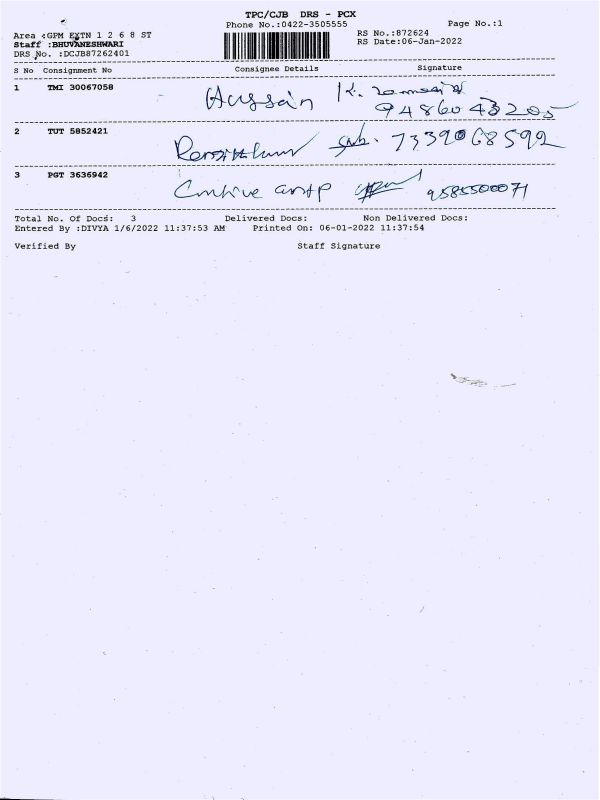 TPC/CJB DRS - PCX
Phone No.:0422-3505555
Page No.:1
Area :GPM EXTN 1 2 6 8 ST
RS No.:872624
Staff :BHUVANESHWARI
RS Date:06-Jan-2022
DRS No. :DCJB87262401
S No Consignment No Consignee Details Signature
1 TMI 30067058 Hussain K.
9486043205
2 TUT 5852421 7339068592
3 PGT 3636942 9585500071
Total No. Of Docs: 3 Delivered Docs: Non Delivered Docs:
Entered By :DIVYA 1/6/2022 11:37:53 AM Printed On: 06-01-2022 11:37:54
Verified By Staff Signature